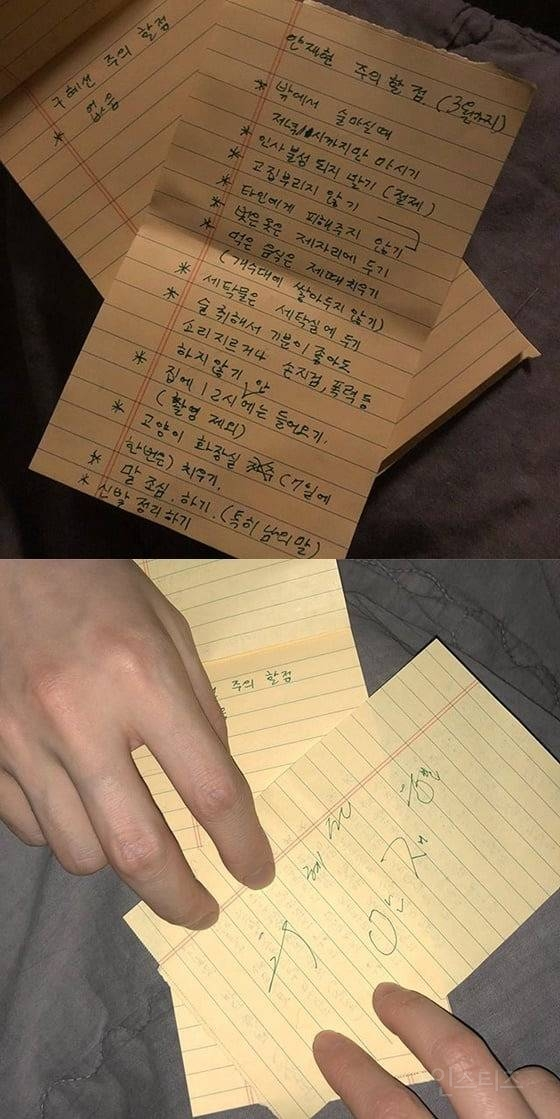 구혜선 주의 할 점
* 없음
안재현 주의 할 점 (3월까지)
* 밖에서 술마실 때
저녁 시까지만 마시기
* 인사불성 되지 말기 (절제)
* 고집부리지 않기
* 타인에게 피해주지 않기
* 벗은 옷은 제자리에 두기
* 먹은 음식은 제때 치우기
(개수대에 쌓아두지 않기)
* 세탁물은 세탁실에 두기
* 술 취해서 기분이 좋아도
소리 지르거나 손지검, 폭력 등
하지 않기
* 집에 12시 안에는 들어오기.
(촬영 제외)
* 고양이 화장실 (7일에
한번은) 치우기.
* 말 조심. 하기. (특히 남의 말)
* 신발 정리하기
주의 할 점
구 혜 선
안 재 현
인스티즈